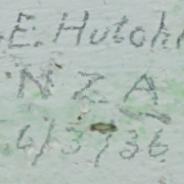 E. Hutch
N Z A
4/3/36